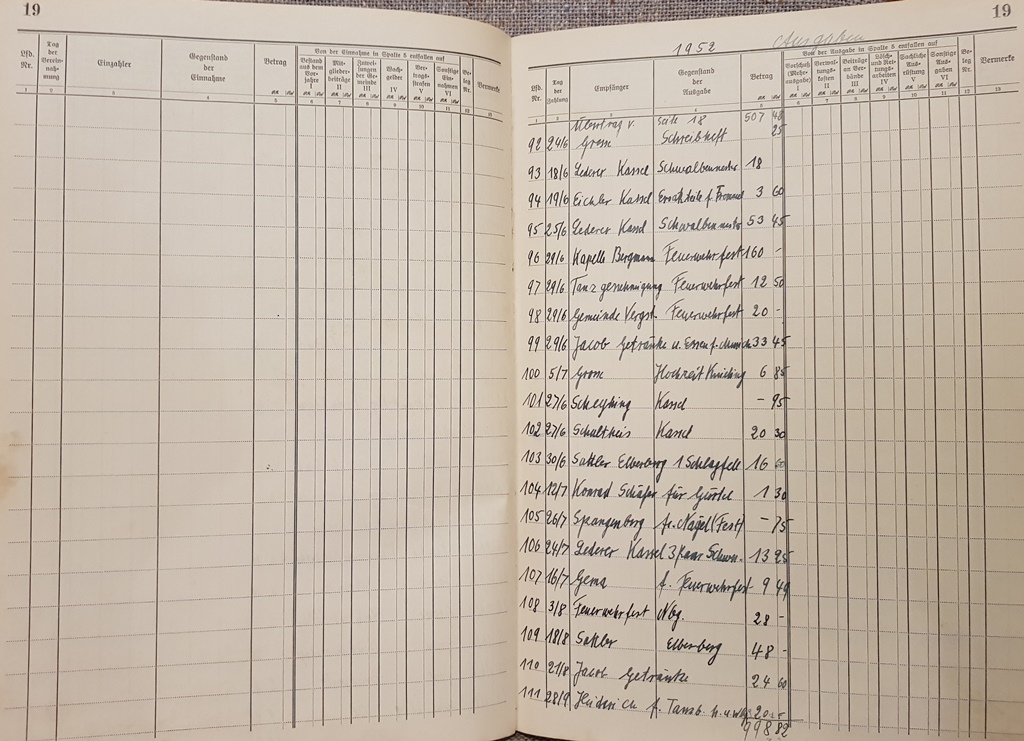 19
Von der Einnahme in Spalte 5 entfallen auf
Lfd. Nr. Tag der Vereinnahmung Einzahler Gegenstand der Einnahme Betrag Bestand aus dem Vorjahre I Mitgliederbeiträge II Zuweisungen der Gemeinde III IV V Sonstige Einnahmen VI Beleg Nr. Vermerke
1 2 3 4 5 6 7 8 9 10 11 12 13
19
1952 Ausgaben
Von der Ausgabe in Spalte 5 entfallen auf
Lfd. Nr. Tag der Zahlung Empfänger Gegenstand der Ausgabe Betrag Vorschuß (Mehrausgabe) Verwaltungskosten I Beiträge an Verbände II Lösch- und Rettungsarbeiten III Sachliche Ausrüstung V Sonstige Ausgaben VI Beleg Nr. Vermerke
1 2 3 4 5 6 7 8 9 10 11 12 13
Übertrag v. Seite 18 507 48
92 24/6 Grosse Schreibheft 25
93 18/6 Lederer Kassel Schwalbennester 18
94 19/6 Eichler Kassel Ersatzteile f. Trommel 3 60
95 25/6 Lederer Kassel Schwalbennester 53 45
96 29/6 Kapelle Bergmann Feuerwehrfest 160 -
97 29/6 Tanzgenehmigung Feuerwehrfest 12 50
98 29/6 Gemeinde Vergst. Feuerwehrfest 20 -
99 29/6 Jacob Getränke u. Essen f. 33 45
100 5/7 Grosse Hochzeit 6 85
101 27/6 Kassel - 95
102 27/6 Schaltheis Kassel 20 30
103 30/6 Sattler Elberberg 1 Schlagfell 16 60
104 12/7 Konrad Schäfer für Gürtel 1 30
105 26/7 Spangenberg fr. Nägel (Fest) - 75
106 24/7 Lederer Kassel 3 Paar Schw. 13 25
107 16/7 Gema f. Feuerwehrfest 9 49
108 3/8 Feuerwehrfest Nbg. 28 -
109 18/8 Sattler Elberberg 48 -
110 21/8 Jacob Getränke 24 60
111 28/9 Heiderich f. Tanzb. 20 -
998 82